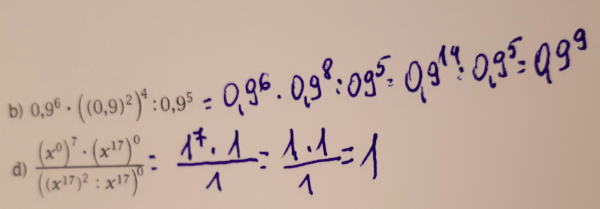 b) 0,9⁶ · ((0,9)²)⁴ : 0,9⁵ = 0,9⁶ · 0,9⁸ : 0,9⁵ = 0,9¹⁴ : 0,9⁵ = 0,9⁹
d) (x⁰)⁷ · (x¹⁷)⁰ / ((x¹⁷)² : x¹⁷)⁰ = 1⁷ · 1 / 1 = 1 · 1 / 1 = 1